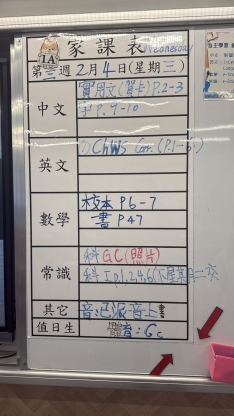 1A
家課表
Wednesday
第三週2月4日(星期三)
中文
實用文(賀卡)P.2-3
P.9-10
英文
ChWS Corr. (P.1-6)
數學
校本 P6-7
書 P47
常識
科 GC(照片)
科 工P.1,2,4,6
其它
音:已派音上書
值日生